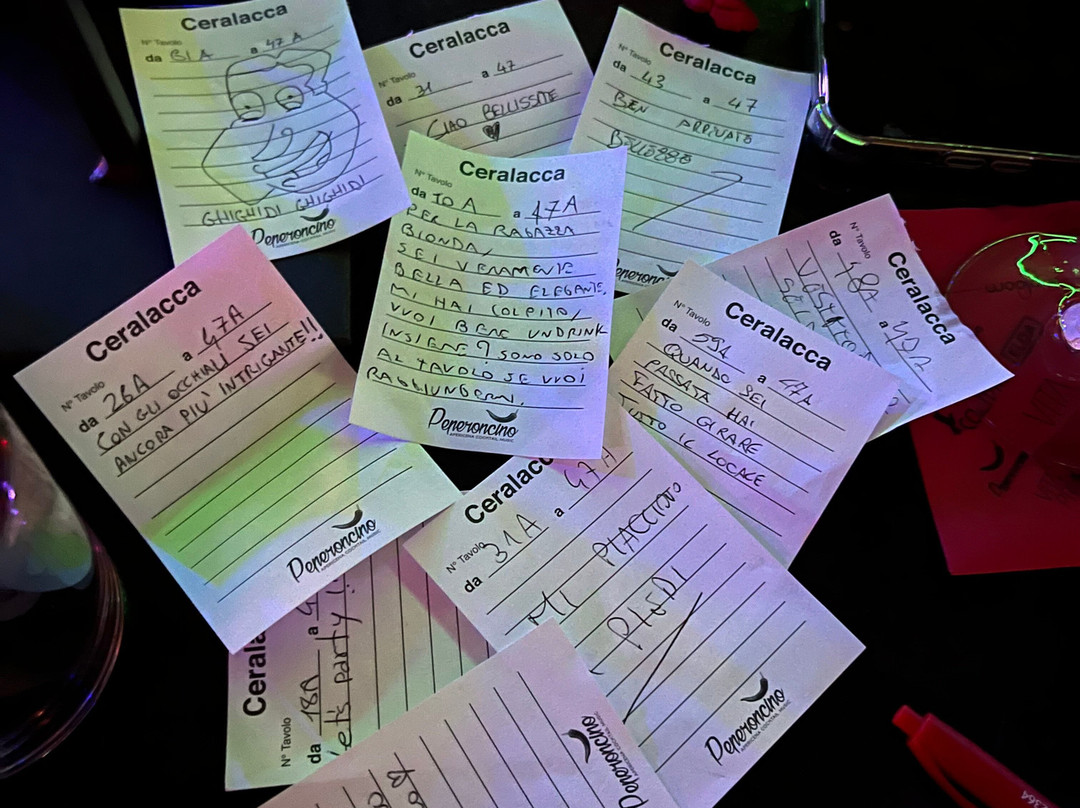 Ceralacca
N° Tavolo
da B1A a 47A
GHIGHIDI GHIGHIDI
Peperoncino
Ceralacca
N° Tavolo
da 31 a 47
CIAO BELLISSIME
Ceralacca
N° Tavolo
da 43 a 47
BEN ARRIVATO
BELLEZZO
Peperoncino
Ceralacca
N° Tavolo
da 10A a 47A
PER LA RAGAZZA
BIONDA,
SEI VERAMENTE
BELLA ED ELEGANTE,
MI HAI COLPITO,
VUOI BERE UN DRINK
INSIEME? SONO SOLO
AL TAVOLO SE VUOI
RAGGIUNGERMI.
Peperoncino
APERICENA COCKTAIL MUSIC
Ceralacca
N° Tavolo
da 48A a
Ceralacca
N° Tavolo
da 26A a 47A
CON GLI OCCHIALI SEI
ANCORA PIÙ INTRIGANTE!!
Peperoncino
APERICENA COCKTAIL MUSIC
Ceralacca
N° Tavolo
da 59A a 47A
QUANDO SEI
PASSATA HAI
FATTO GIRARE
TUTTO IL LOCALE
Ceralacca
N° Tavolo
da 31A a 47A
MI PIACCIONO
PIEDI
Peperoncino
APERICENA COCKTAIL MUSIC
Cerala
N° Tavolo
da 18A a
let's party!
Peperoncino
APERICENA COCKTAIL MUSIC